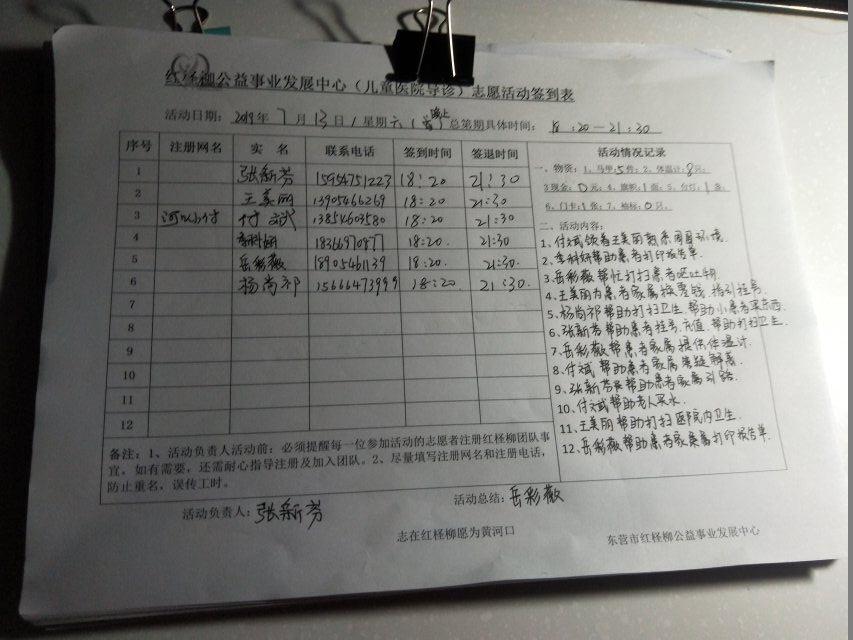 红柽柳公益事业发展中心（儿童医院导诊）志愿活动签到表
活动日期：2019年7月13日（星期六）晚上 总第期具体时间：18:20—21:30
序号 注册网名 实名 联系电话 签到时间 签退时间 活动情况记录
1 张新芳 15954751223 18:20 21:30
2 王美丽 13905466269 18:20 21:30
3 付斌 13854603580 18:20 21:30
4 18366970877 18:20. 21:30
5 岳彩薇 18905461139 18:20. 21:30.
6 杨尚祁 15666473999 18:20 21:30.
7
8
9
10
11
12
一、物资：1、马甲5件；2、体温计：8只。
3现金：0元；4、旗帜：1面；5、台灯：1条
6、门卡：1张；7、袖标：0只。
二、活动内容：
1、付斌领着王美丽熟悉周围环境.
2、帮助患者打印报告单.
3、岳彩薇帮忙打扫患者呕吐物
4、王美丽为患者家属换零钱.指引挂号.
5、杨尚祁帮助打扫卫生.帮助小患者买东西.
6、张新芳帮助患者挂号.充值.帮助打扫卫生.
7、岳彩薇帮患者家属提供体温计.
8、付斌帮助患者家属答疑解惑.
9、张新芳帮助患者家属引路.
10、付斌帮助老人买水.
11、王美丽帮助打扫医院内卫生.
12、岳彩薇帮助患者家属打印报告单.
备注：1、活动负责人活动前：必须提醒每一位参加活动的志愿者注册红柽柳团队事
宜，如有需要，还需耐心指导注册及加入团队。2、尽量填写注册网名和注册电话，
防止重名，误传工时。
活动负责人：张新芳 活动总结：岳彩薇
志在红柽柳愿为黄河口 东营市红柽柳公益事业发展中心